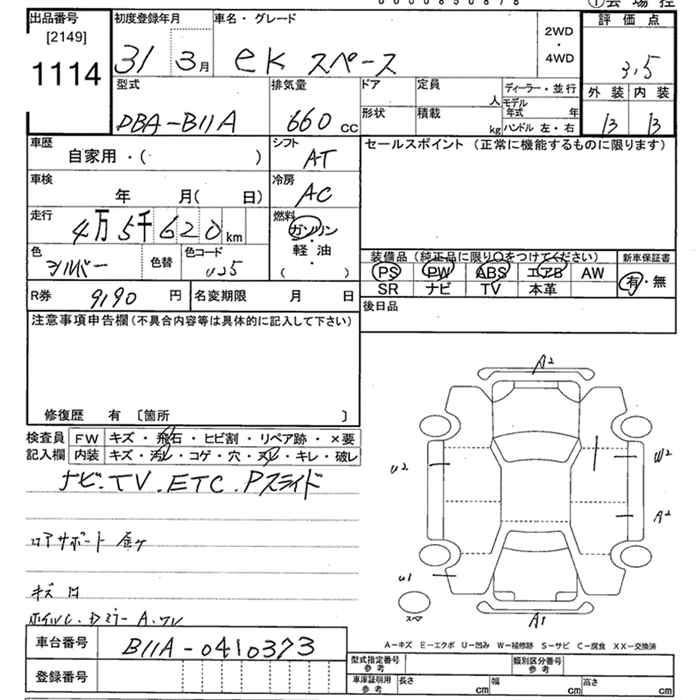 0000850878 ①会場控
出品番号 初度登録年月 車名・グレード 2WD・4WD 評価点
[2149]
1114
31 3月 eK スペース 3.5
型式 排気量 ドア 定員 人 ディーラー・並行 外装 内装
DBA-B11A 660cc 形状 積載 kg モデル年式 年 ハンドル 左・右 B B
車歴 自家用・( ) シフト AT セールスポイント (正常に機能するものに限ります)
車検 年 月( 日) 冷房 AC
走行 4万5千620km 燃料 ガソリン・軽油・( )
色 シルバー 色替 色コード U25
装備品 (純正品に限り○をつけてください) 新車保証書
PS PW ABS エアB AW 有・無
SR ナビ TV 本革
R券 9190円 名変期限 月 日 後日品
注意事項申告欄(不具合内容等は具体的に記入して下さい)
修復歴 有 [箇所 ]
検査員記入欄 FW キズ・飛石・ヒビ割・リペア跡・×要
内装 キズ・汚レ・コゲ・穴・スレ・キレ・破レ
ナビ.TV.ETC.Pスライド
コアサポート
キズ
A2
U2
W2
A2
U1
A1
スペア
車台番号 B11A-0410373
登録番号
A-キズ E-エクボ U-凹み W-補修跡 S-サビ C-腐食 XX-交換済
型式指定番号 参考 類別区分番号 参考
車庫証明用 参考 長さ cm 幅 cm 高さ cm